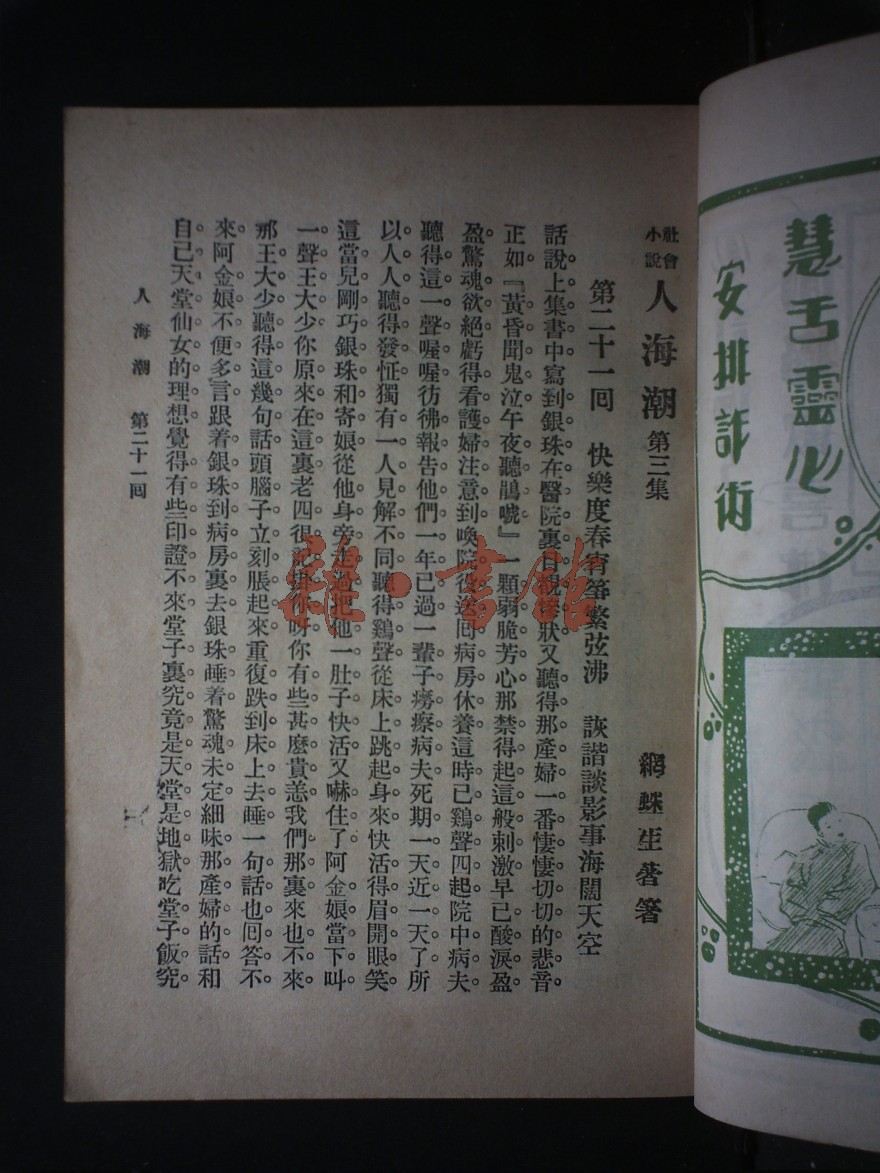 慧舌靈心
安排詐術
社會
小說
人海潮 第三集
網蛛生著
第二十一回 快樂度春宵箏繁弦沸 詼諧談影事海闊天空
話說上集書中寫到銀珠在醫院裏目覩慘狀又聽得那產婦一番悽悽切切的悲音。
正如『黃昏聞鬼泣午夜聽鵑嘷』一顆弱脆芳心那禁得起這般刺激早已酸淚盈
盈。驚魂欲絕。虧得看護婦注意到喚院役送回病房休養。這時已鷄聲四起。院中病夫
聽得這一聲喔喔。彷彿報告他們一年已過一輩子癆瘵病夫死期一天近一天了。所
以人人聽得發怔。獨有一人見解不同。聽得鷄聲從床上跳起身來。快活得眉開眼笑。
這當兒剛巧銀珠和寄娘從他身旁走過。把他一肚子快活又嚇住了。阿金娘當下叫
一聲王大少。你原來在這裏。老四很記掛你呀。你有些甚麼貴恙。我們那裏來也不來。
那王大少聽得這幾句話。頭腦子立刻脹起來。重復跌到床上去睡。一句話也回答不
來。阿金娘不便多言。跟着銀珠到病房裏去。銀珠睡着。驚魂未定。細味那產婦的話。和
自己天堂仙女的理想。覺得有些印證不來。堂子裏究竟是天堂是地獄。吃堂子飯。究
人海潮 第二十一回
一
雜·書館